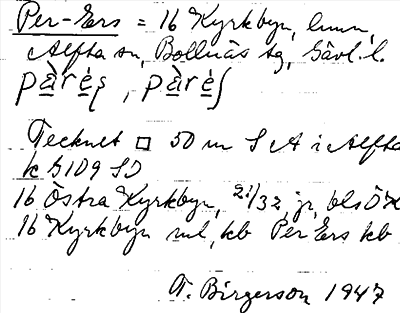 Per-Ers = 16 Kyrkbyn, hmn,
Alfta sn, Bollnäs tg, Gävl. l.
pàrės, pàrės
Tecknet □ 50 m S A i Alfta
k 5109 SD
16 Östra Kyrkbyn, 21/32, jr, bls Ö K
16 Kyrkbyn ml, kb Per Ers kb
T. Birgerson 1947